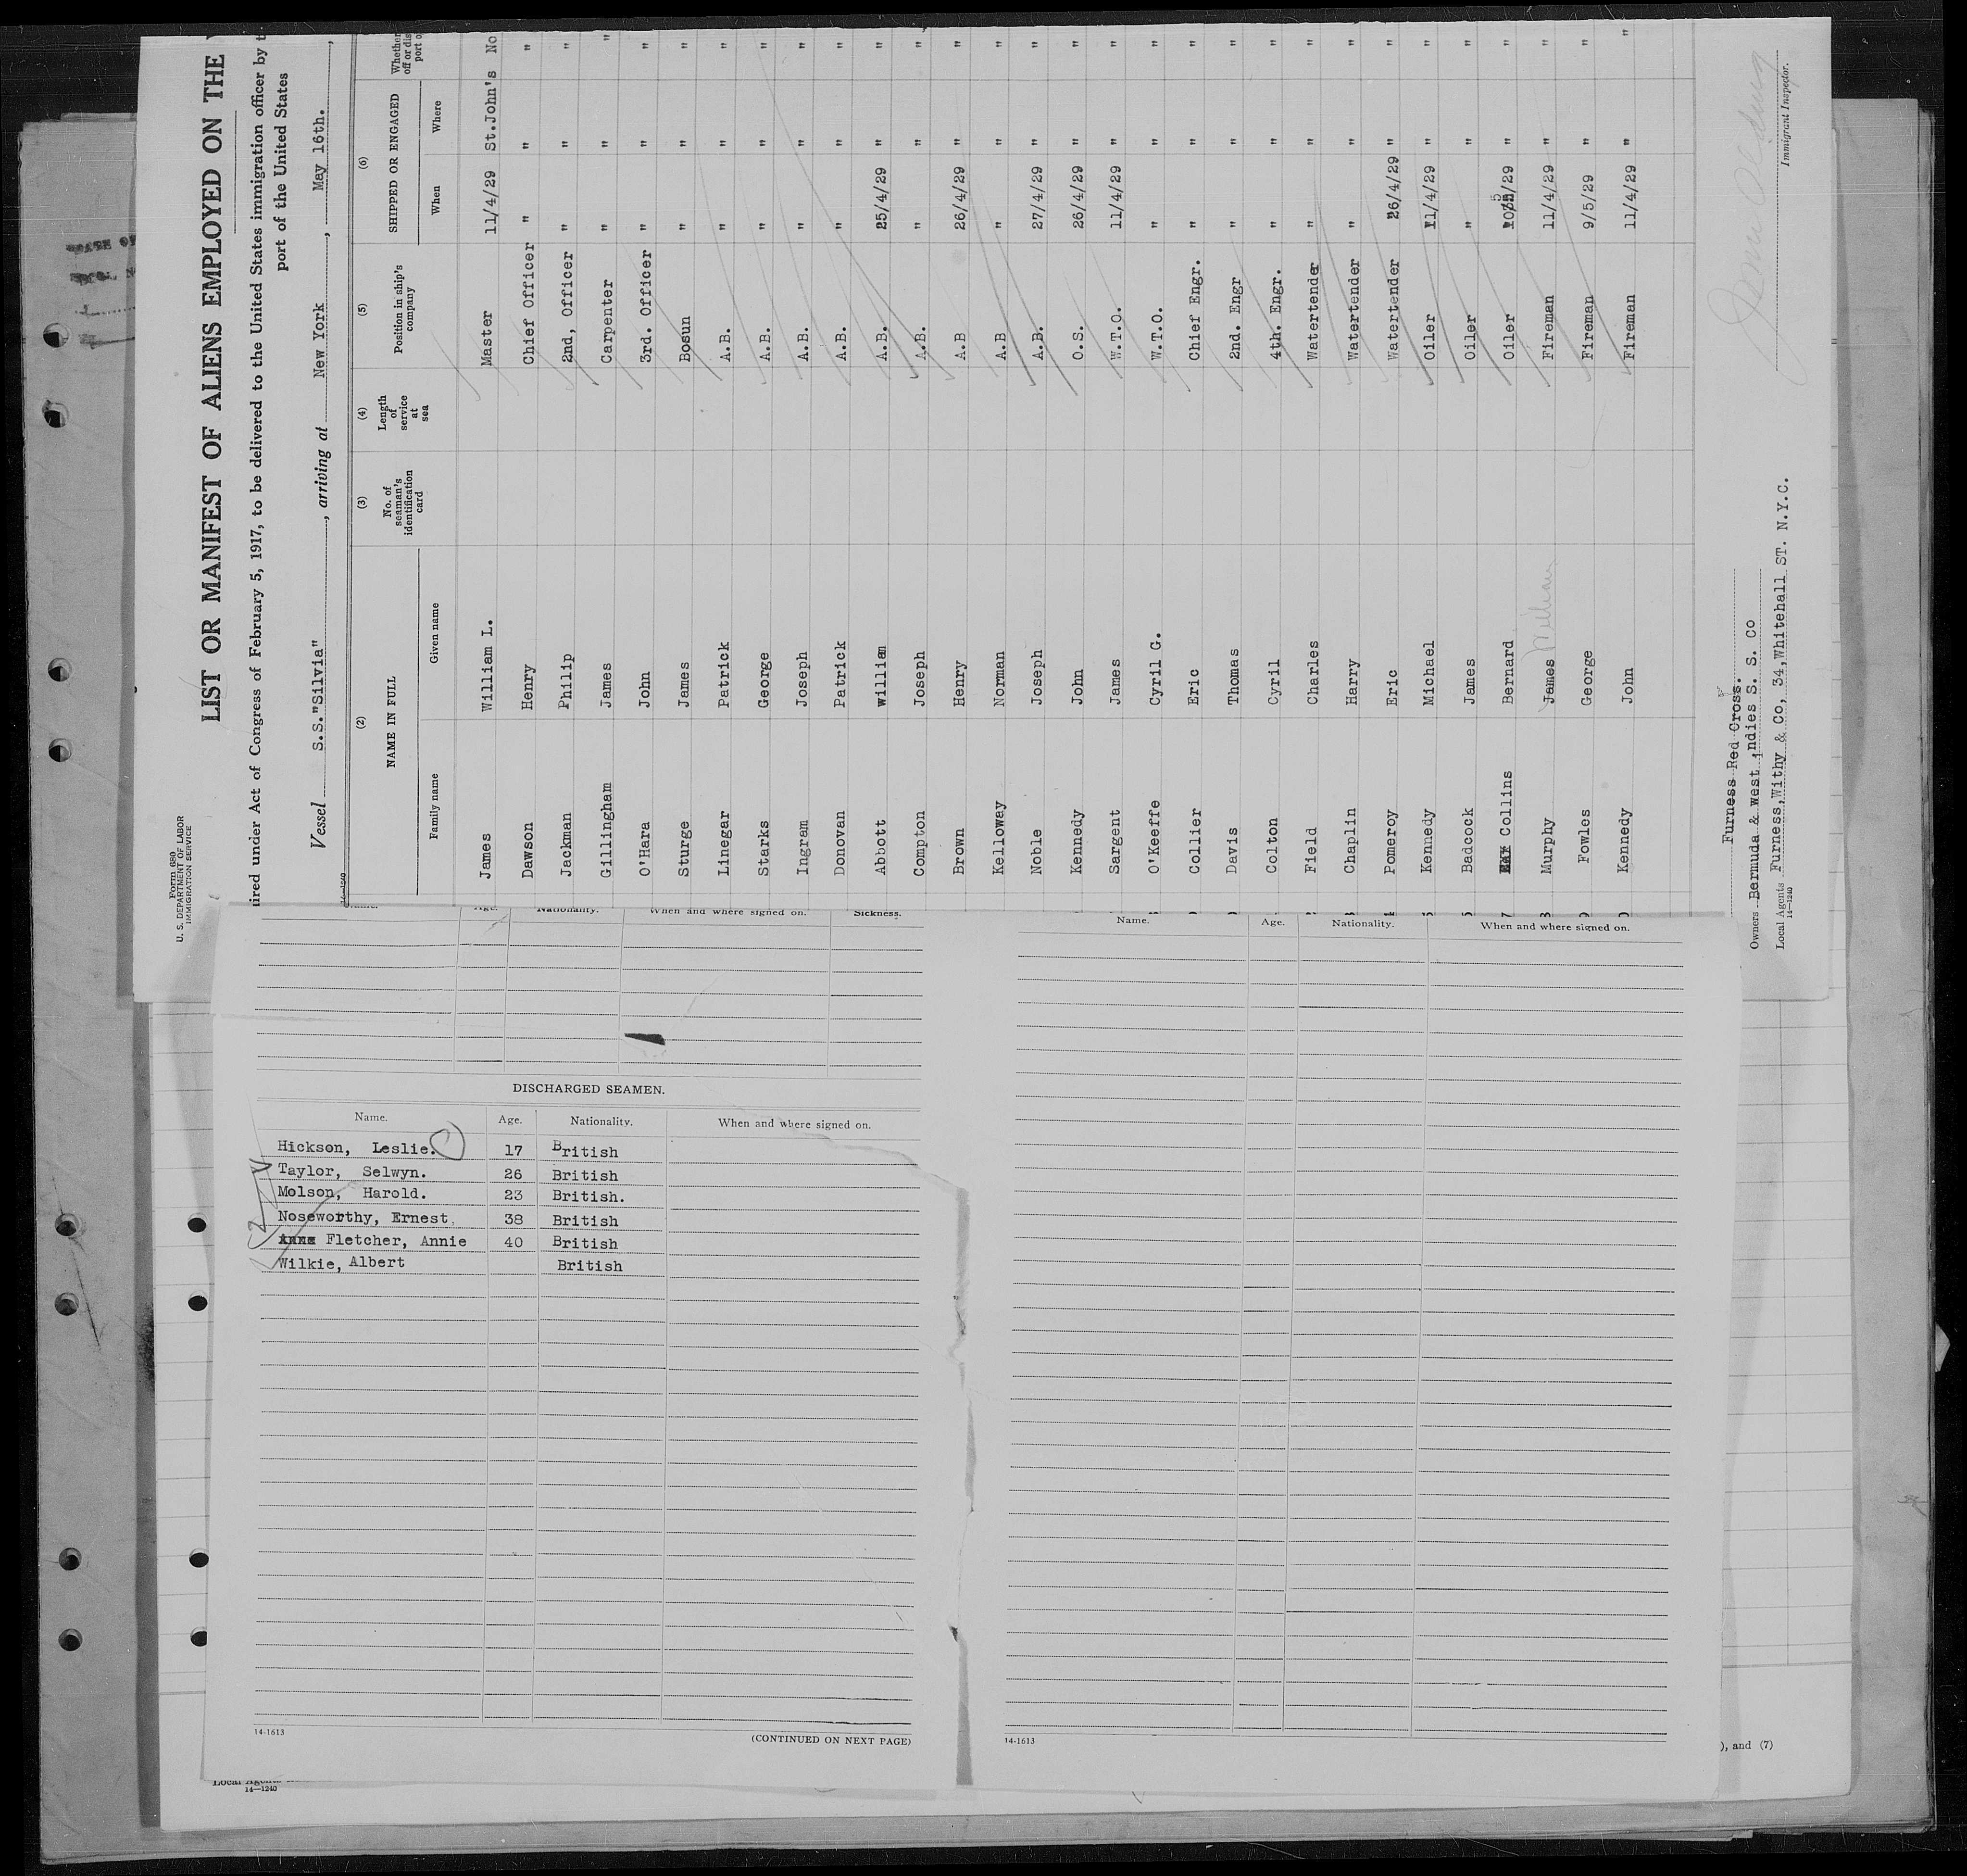 Form 680
U. S. DEPARTMENT OF LABOR
IMMIGRATION SERVICE
LIST OR MANIFEST OF ALIENS EMPLOYED ON THE
uired under Act of Congress of February 5, 1917, to be delivered to the United States immigration officer by
port of the United States
Vessel S.S."Silvia", arriving at New York, May 16th.,
14—1240
(2) (3) (4) (5) (6)
NAME IN FULL No. of seaman's identification card Length of service at sea Position in ship's company SHIPPED OR ENGAGED Whether
off or dis
port o
Family name Given name When Where
James William L. Master 11/4/29 St.John's No
Dawson Henry Chief Officer " " "
Jackman Philip 2nd, Officer " " "
Gillingham James Carpenter " " "
O'Hara John 3rd. Officer " " "
Sturge James Bosun " " "
Linegar Patrick A.B. " " "
Starks George A.B. " " "
Ingram Joseph A.B. " " "
Donovan Patrick A.B. " " "
Abbott william A.B. 25/4/29 " "
Compton Joseph A.B. " " "
Brown Henry A.B 26/4/29 " "
Kelloway Norman A.B " " "
Noble Joseph A.B. 27/4/29 " "
Kennedy John O.S. 26/4/29 " "
Sargent James W.T.O. 11/4/29 " "
O'Keeffe Cyril G. W.T.O. " " "
Collier Eric Chief Engr. " " "
Davis Thomas 2nd. Engr " " "
Colton Cyril 4th. Engr. " " "
Field Charles Watertender " " "
Chaplin Harry Watertender " " "
Pomeroy Eric Watertender 26/4/29 " "
Kennedy Michael Oiler 11/4/29 " "
Badcock James Oiler " " "
Collins Bernard Oiler /29 " "
Murphy James William Fireman 11/4/29 " "
Fowlos George Fireman 9/5/29 " "
Kennedy John Fireman 11/4/29 " "
Furness Red Cross.
Owners Bermuda & west indies S. S. Co
Local Agents Furness,Withy & Co, 34,Whitehall ST. N.Y.C.
14—1240
Immigrant Inspector.
Age. Nationality. When and where signed on. Sickness.
DISCHARGED SEAMEN.
Name. Age. Nationality. When and where signed on.
Hickson, Leslie. 17 British
Taylor, Selwyn. 26 British
Molson, Harold. 23 British.
Noseworthy, Ernest. 38 British
Fletcher, Annie 40 British
Wilkie, Albert British
14-1613
(CONTINUED ON NEXT PAGE)
Name. Age. Nationality. When and where signed on.
14-1613
), and (7)
Local Agents
14—1240